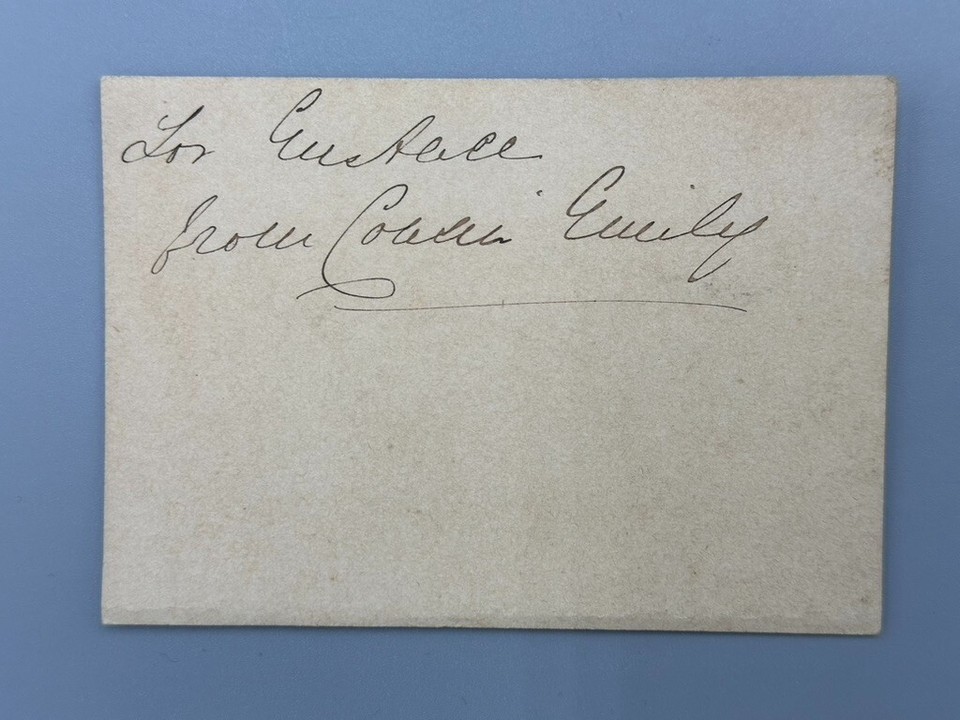 For Eustace
from Cousin Emily